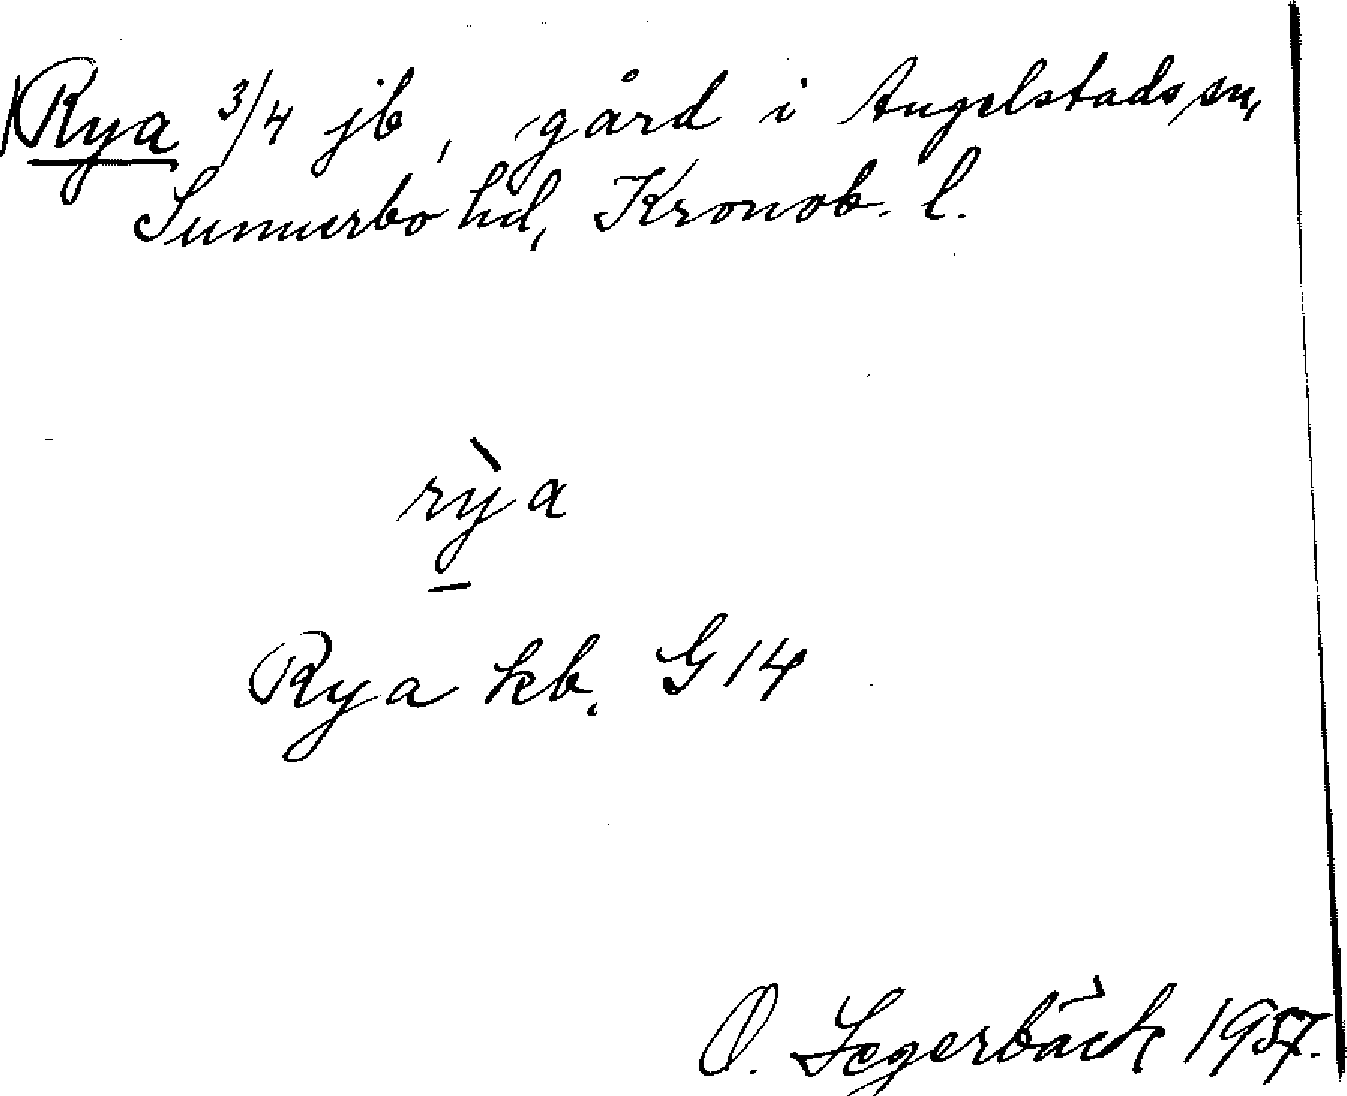 Rya 3/4 jb, gård i Angelstads sn,
Sunnerbo hd, Kronob. l.
rỳa
Rya kb. G 14
O. Segerbäck 1957.